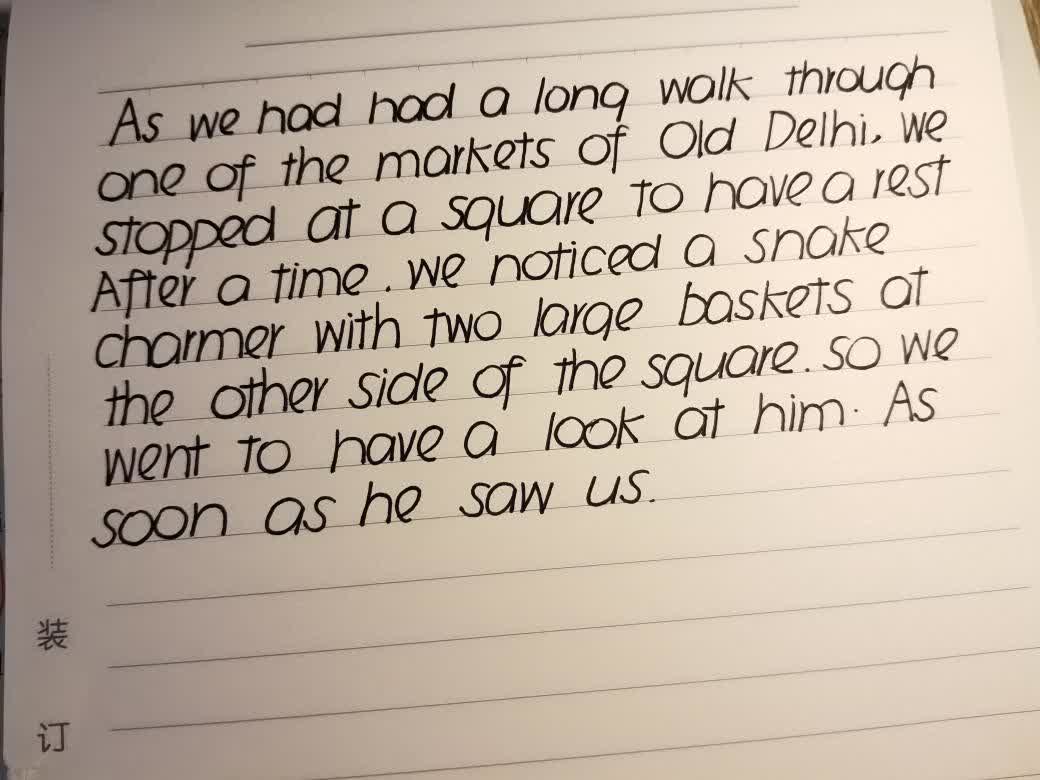 As we had had a long walk through
one of the markets of Old Delhi, we
stopped at a square to have a rest
After a time. we noticed a snake
charmer with two large baskets at
the other side of the square. so we
went to have a look at him. As
soon as he saw us.
装
订